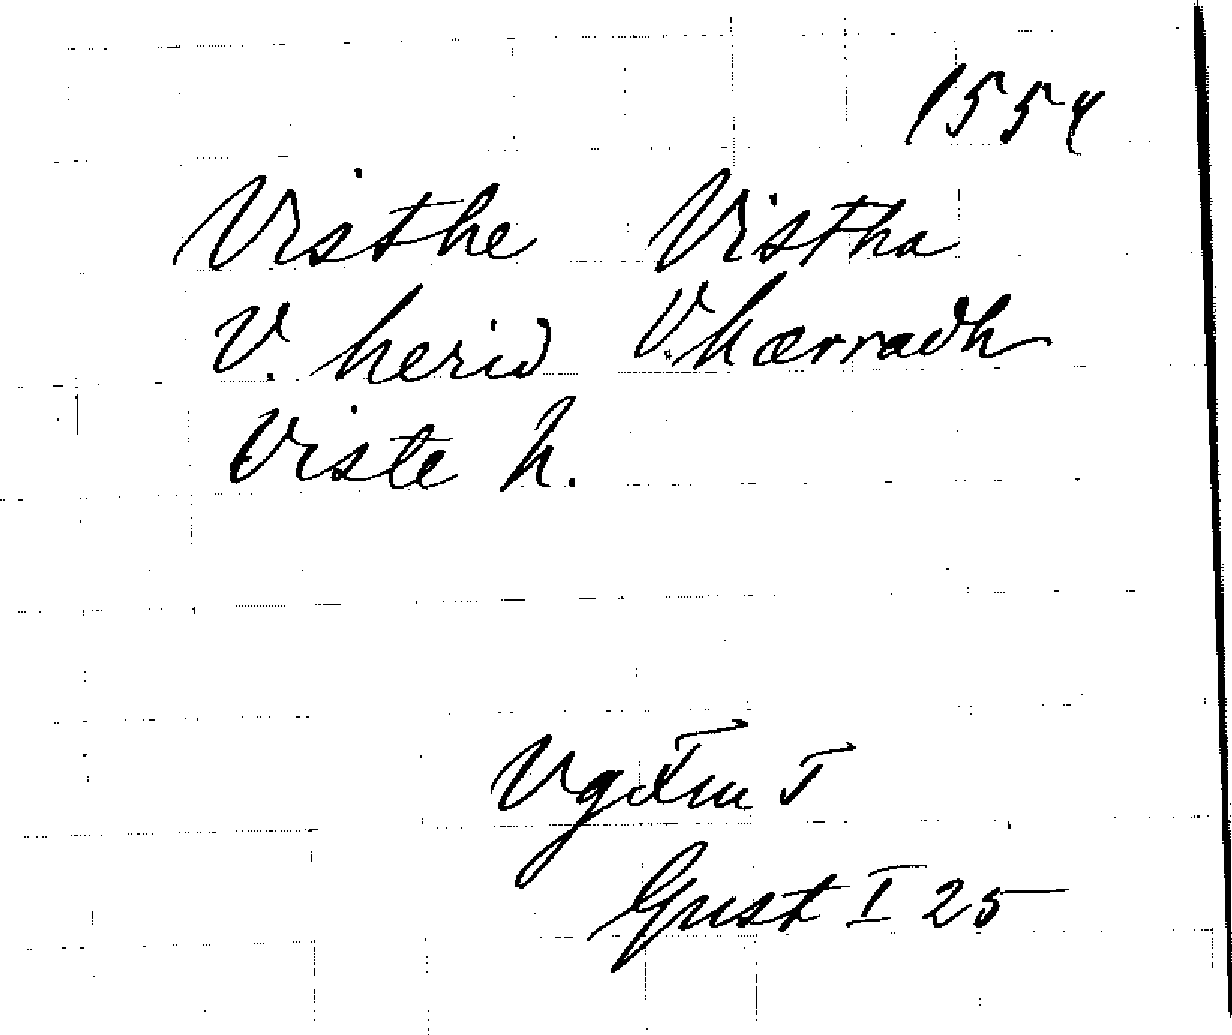 1554
Visthe Vistha
V. herid V. hærradh
Viste h.
Vg Fm T
Gust I 25